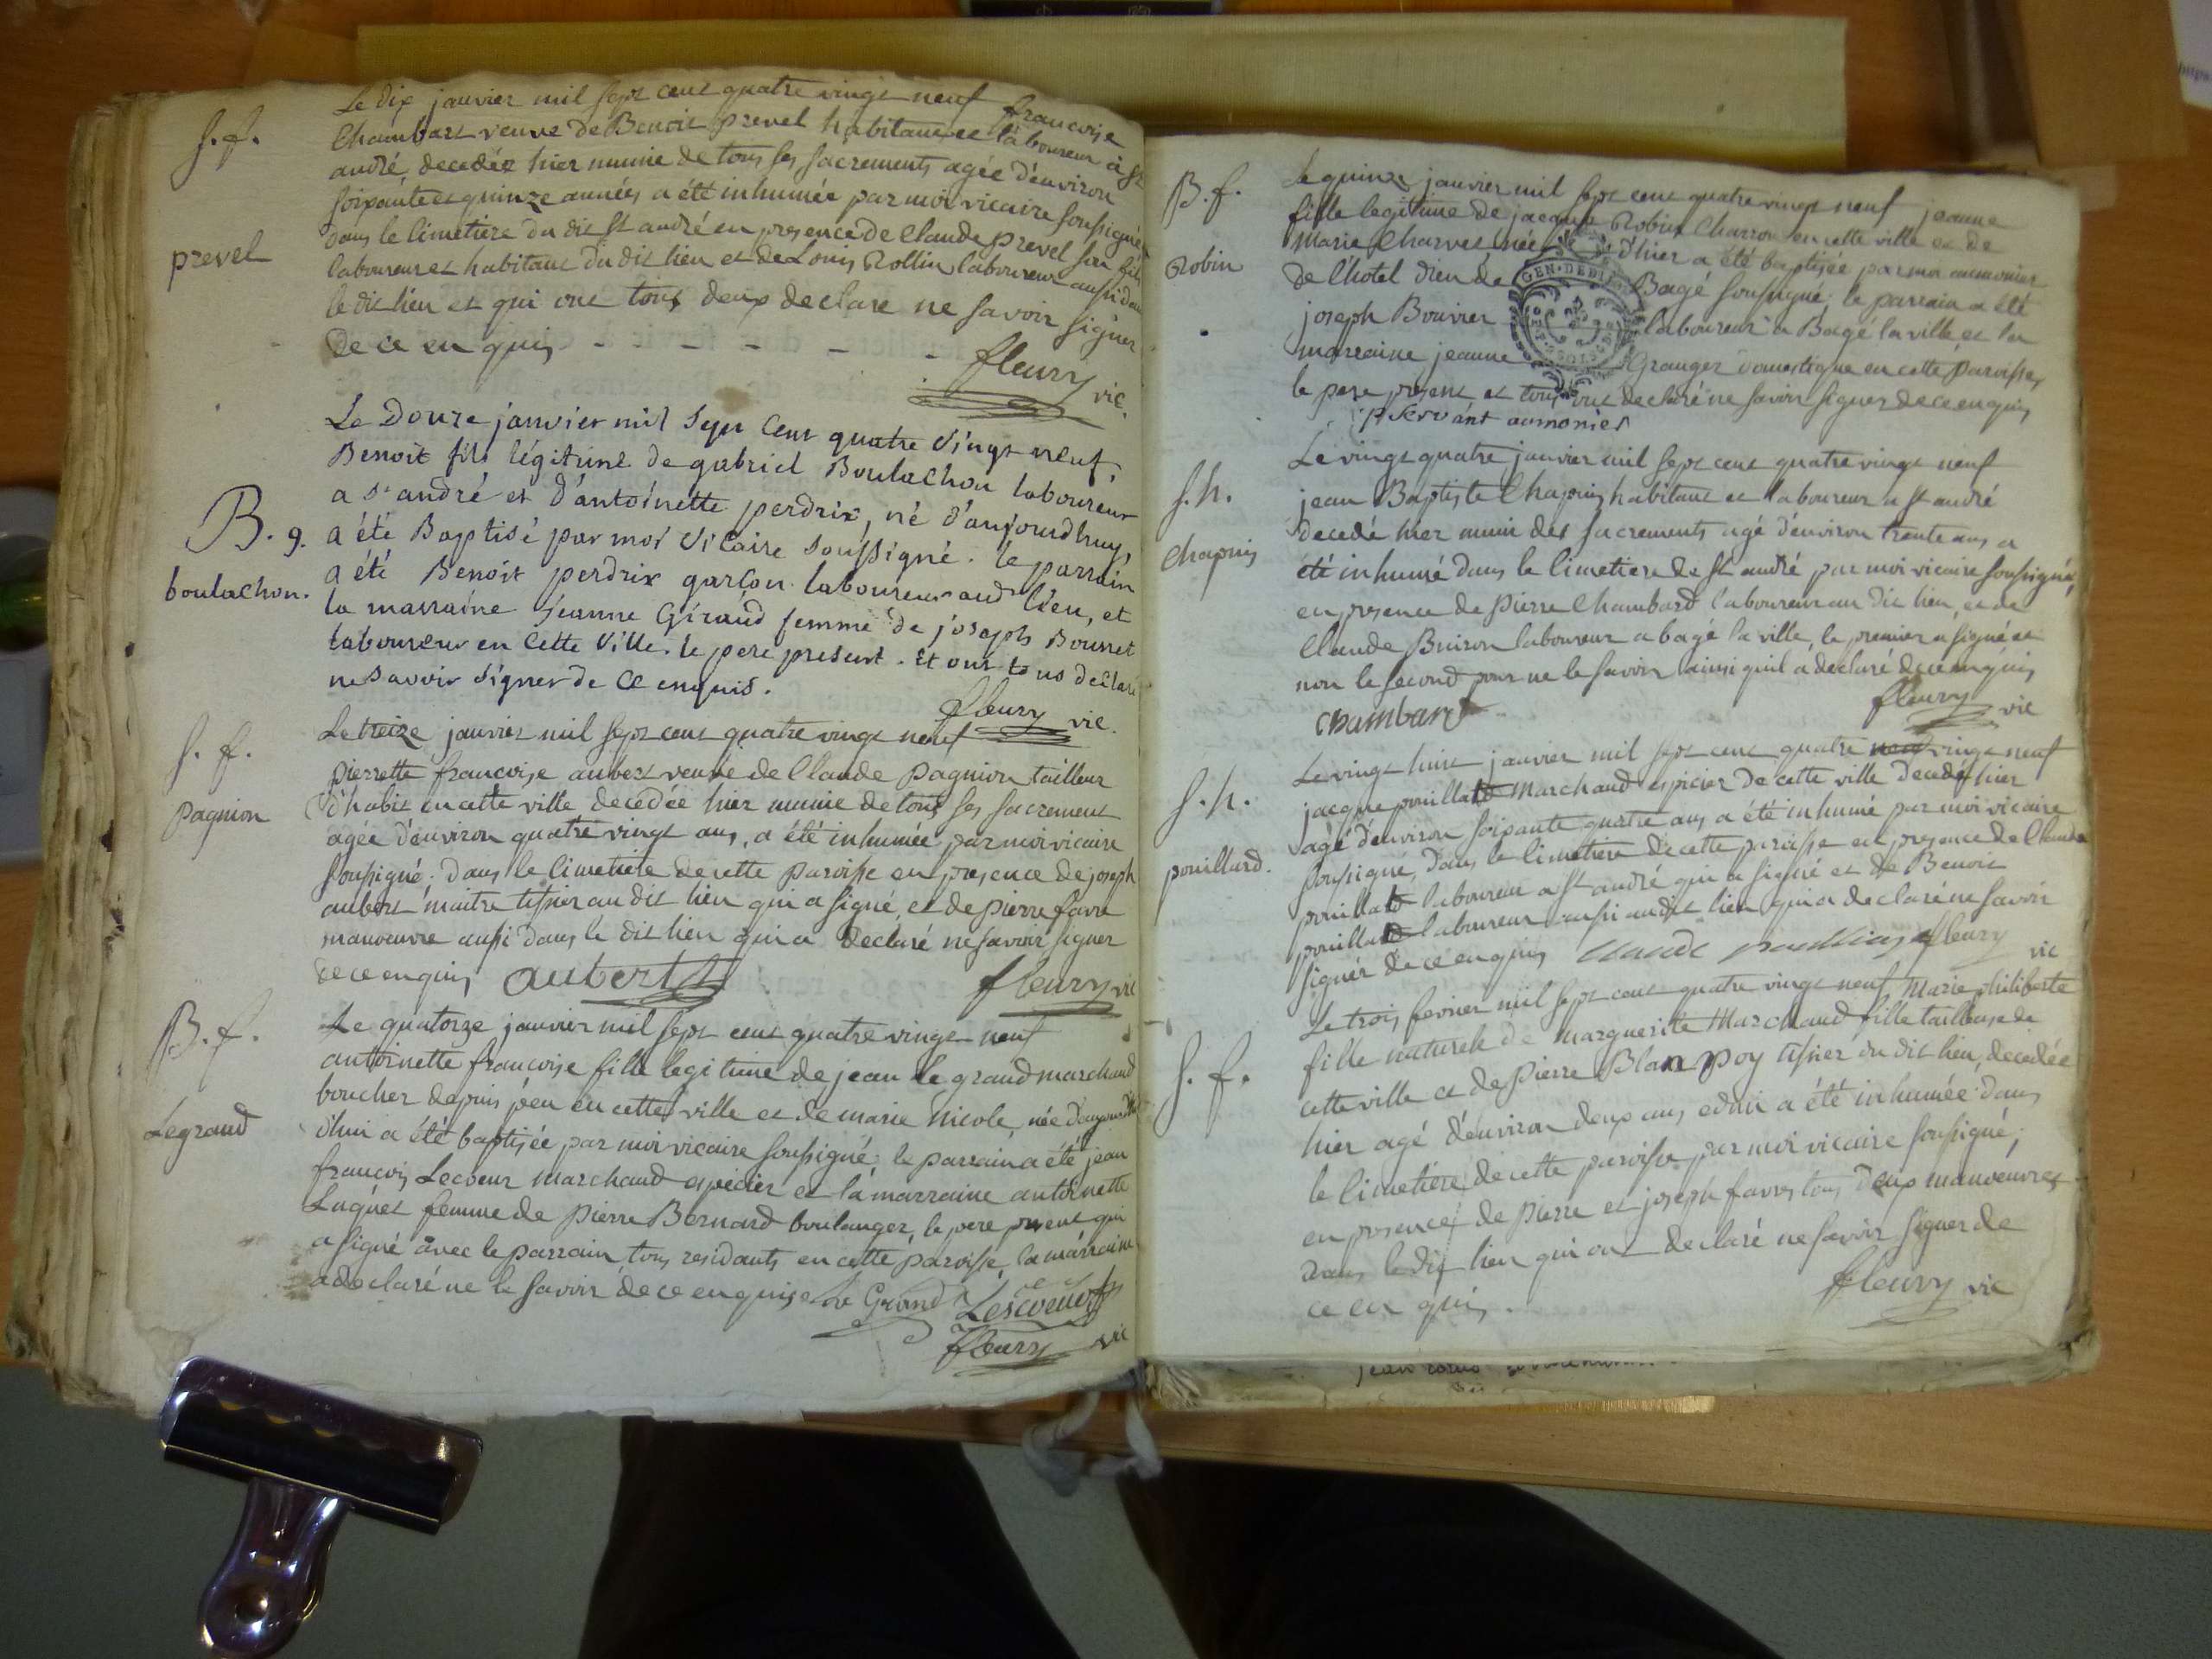 Le dix janvier mil sept cent quatre vingt neuf francoise
S. f.
Chambart veuve de Benoit prevel habitant et laboureur à St
andré, decedée hier munie de tous ses sacrements agée d'environ
soixante et quinze années a été inhumée par moi vicaire soussigné
dans le cimetiere du dit St andré en presence de Claude prevel son fils
prevel
laboureur et habitant du dit lieu et de Louis Rollin laboureur aussi dans
le dit lieu et qui ont tous deux declare ne savoir signer
de ce en quis
fleury vic.
Le Douze janvier mil sept Cent quatre Vingt neuf,
Benoit fils légitime de gabriel Boulachon laboureur
a St andré et d'antoinette perdrix, né d'aujourdhuy,
B. g.
a été Baptisé par moi Vicaire soussigné. le parrain
a été Benoit perdrix garçon laboureur aud lieu, et
boulachon.
la marraine jeanne Giraud femme de joseph Bourret
laboureur en Cette Ville. le pere present. Et ont tous declaré
ne savoir signer de Ce enquis.
fleury vic.
Le treize janvier mil sept cent quatre vingt neuf
S. f.
pierrette francoise aubert veuve de Claude pagnion tailleur
pagnion
d'habit en cette ville decedée hier munie de tous ses sacrement
agée d'environ quatre vingt ans, a été inhumée par moi vicaire
soussigné. Dans le cimetiere de cette paroisse en presence de joseph
aubert maitre tissier au dit lieu qui a signé, et de pierre favre
manoeuvre aussi dans le dit lieu qui a declaré ne savoir signer
de ce enquis aubert fleury vic
B. f.
Le quatorze janvier mil sept cent quatre vingt neuf
antoinette francoise fille legitime de jean le grand marchand
boucher depuis peu en cette ville et de marie Nicole, née
Legrand
d'hui a été baptisée par moi vicaire soussigné; le parrain a été jean
francois Lecoeur marchand epicier et la marraine antoinette
Luquet femme de pierre Bernard boulanger, le pere present qui
a signé avec le parrain tous residants en cette paroisse, la marraine
a declaré ne le savoir de ce enquise Le Grand Lescoeur
fleury vic
Le quinze janvier mil sept cent quatre vingt neuf jeanne
B. f.
fille legitime de jacque Robin Charron en cette ville et de
Marie Charvet née d'hier a été baptisée par moi aumonier
Robin
de l'hotel Dieu de Bagé soussigné; le parrain a été
GEN. DE
joseph Bouvier laboureur a Bagé la ville et la
marraine jeanne Granger domestique en cette paroisse,
le pere present et tous ont declaré ne savoir signer de ce enquis
servant aumonier
Le vingt quatre janvier mil sept cent quatre vingt neuf
S. h.
jean Baptiste Chapuis habitant et laboureur a St andré
decedé hier muni des sacrements agé d'environ trente ans a
Chapuis
été inhumé dans le cimetiere de St andré par moi vicaire soussigné,
en presence de Pierre Chambard laboureur au dit lieu, et de
Claude Buiron laboureur a bagé la ville, le premier a signé et
non le second pour ne le savoir ainsi quil a declaré de ce enquis
fleury vic
Chambard
Le vingt huit janvier mil sept cent quatre neuf vingt neuf
S. h.
jacque pouillat Marchand epicier de cette ville decedé hier
agé d'environ soixante quatre ans a été inhumé par moi vicaire
pouillard.
soussigné, Dans le cimetiere de cette paroisse en presence de Claude
pouillat laboureur a St andré qui a signé et de Benoit
pouillat laboureur aussi au dit lieu qui a declaré ne savoir
signer de ce enquis Claude fleury vic
Le trois fevrier mil sept cent quatre vingt neuf Marie philiberte
fille naturele de Marguerite Marchand fille tailleuse de
S. f.
cette ville et de Pierre Blanpoy tissier du dit lieu, decedée
hier agé d'environ deux ans edmi a été inhumée dans
le cimetiere de cette paroisse par moi vicaire soussigné;
en presence de Pierre et joseph favre tous deux manoeuvres
dans le dit lieu qui ont declaré ne savoir signer de
ce en quis.
fleury vic